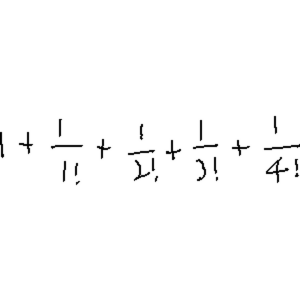 1 + 1/1! + 1/2! + 1/3! + 1/4!